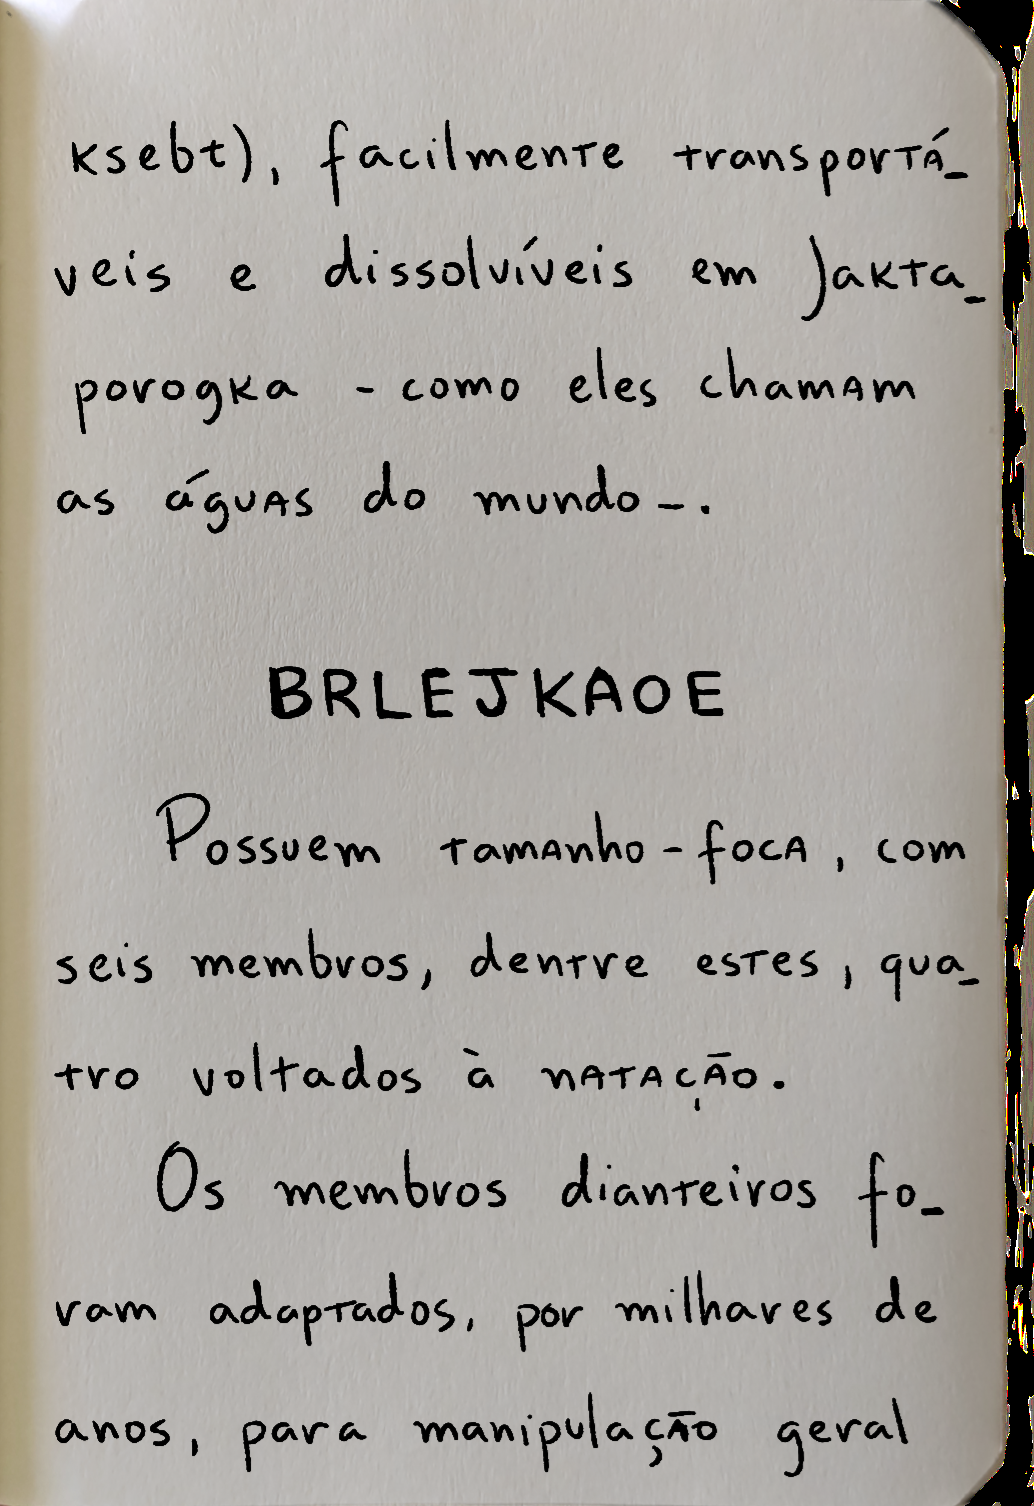 ksebt), facilmente transportá_
veis e dissolvíveis em Jakta_
porogka - como eles chamam
as águas do mundo - .
BRLEJKAOE
Possuem tamanho - foca , com
seis membros, dentre estes , qua_
tro voltados à natação.
Os membros dianteiros fo_
ram adaptados, por milhares de
anos, para manipulação geral